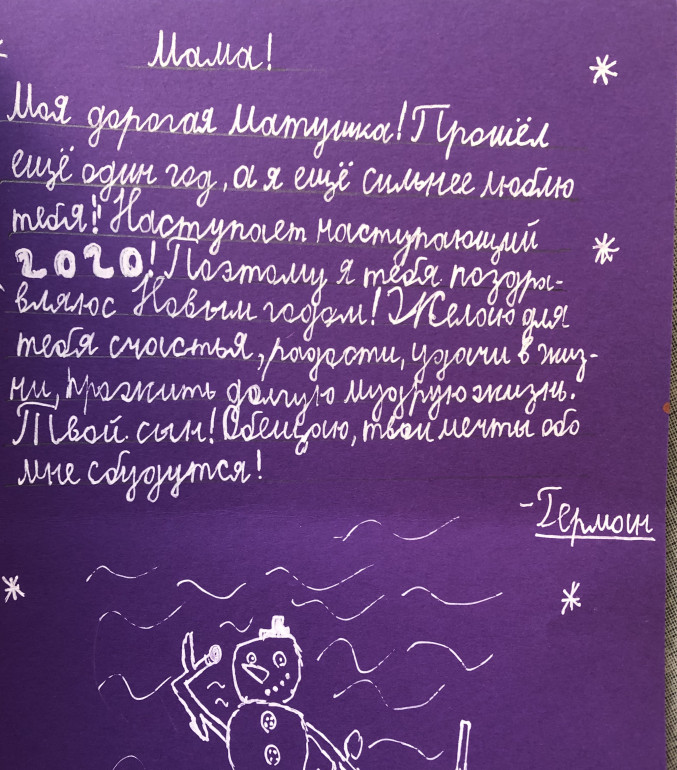 Мама!
Моя дорогая Матушка! Прошёл
ещё один год, а я ещё сильнее люблю
тебя!! Наступает наступающий
2020! Поэтому я тебя поздра-
вляюс Новым годом! Желаю для
тебя счастья, радости, удачи в жиз-
ни, прожить долгую мудрую жизнь.
Твой сын! Обещаю, твои мечты обо
мне сбудутся!
-Герман